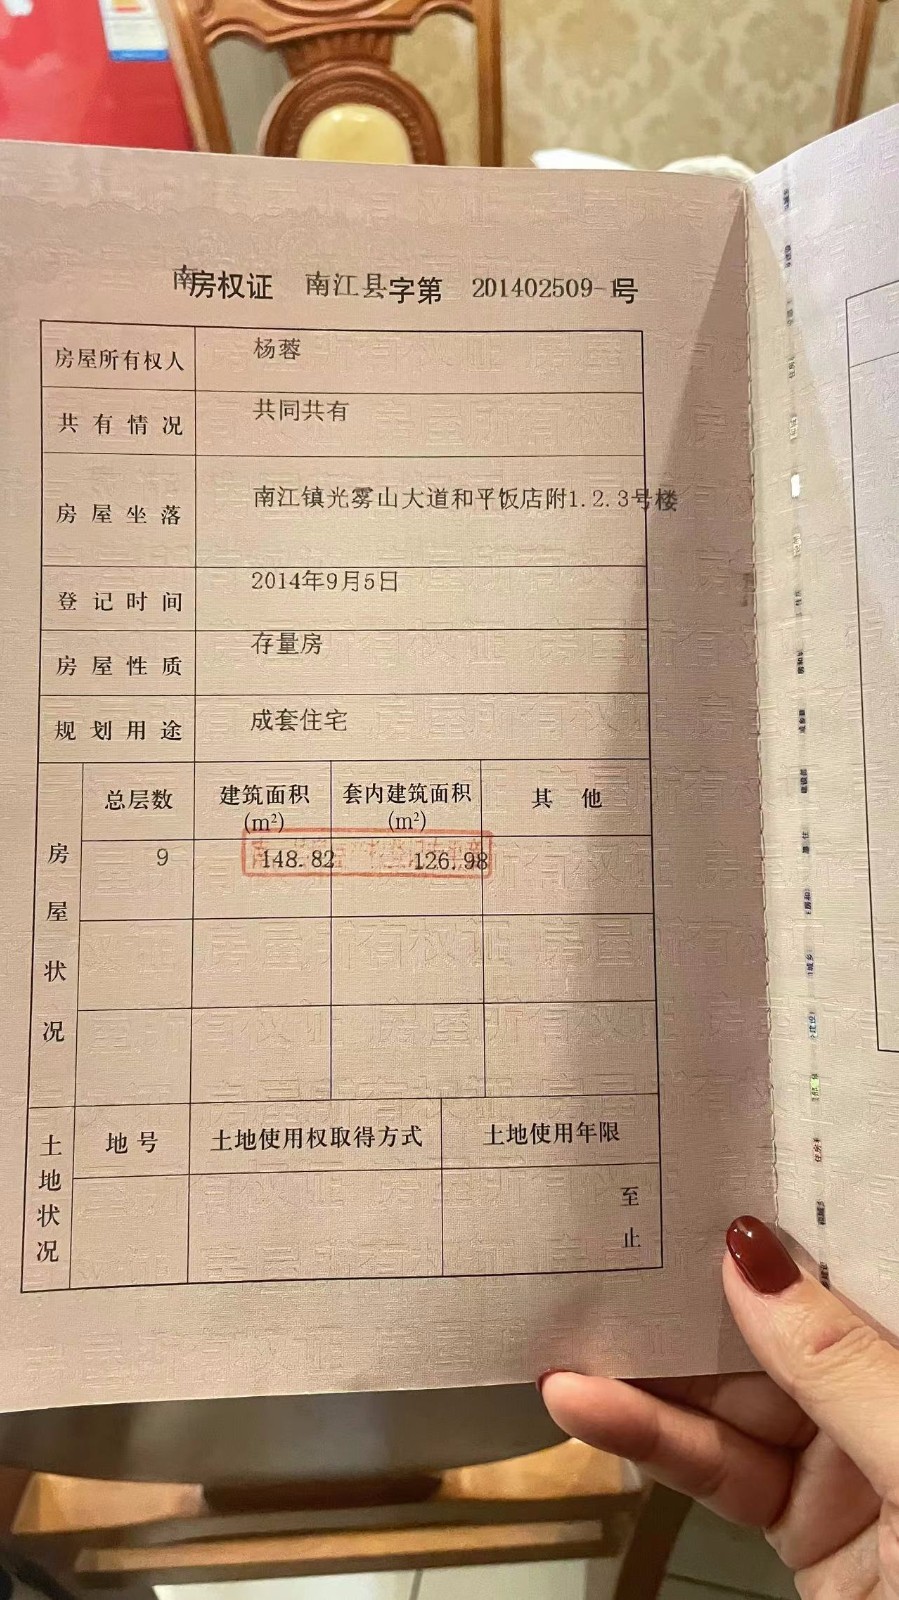 南房权证 南江县字第 201402509-1号
房屋所有权人 杨蓉
共有情况 共同共有
房屋坐落 南江镇光雾山大道和平饭店附1.2.3号楼
登记时间 2014年9月5日
房屋性质 存量房
规划用途 成套住宅
房屋状况
总层数 建筑面积(m²) 套内建筑面积(m²) 其他
9 148.82 126.98
土地状况
地号 土地使用权取得方式 土地使用年限
至
止